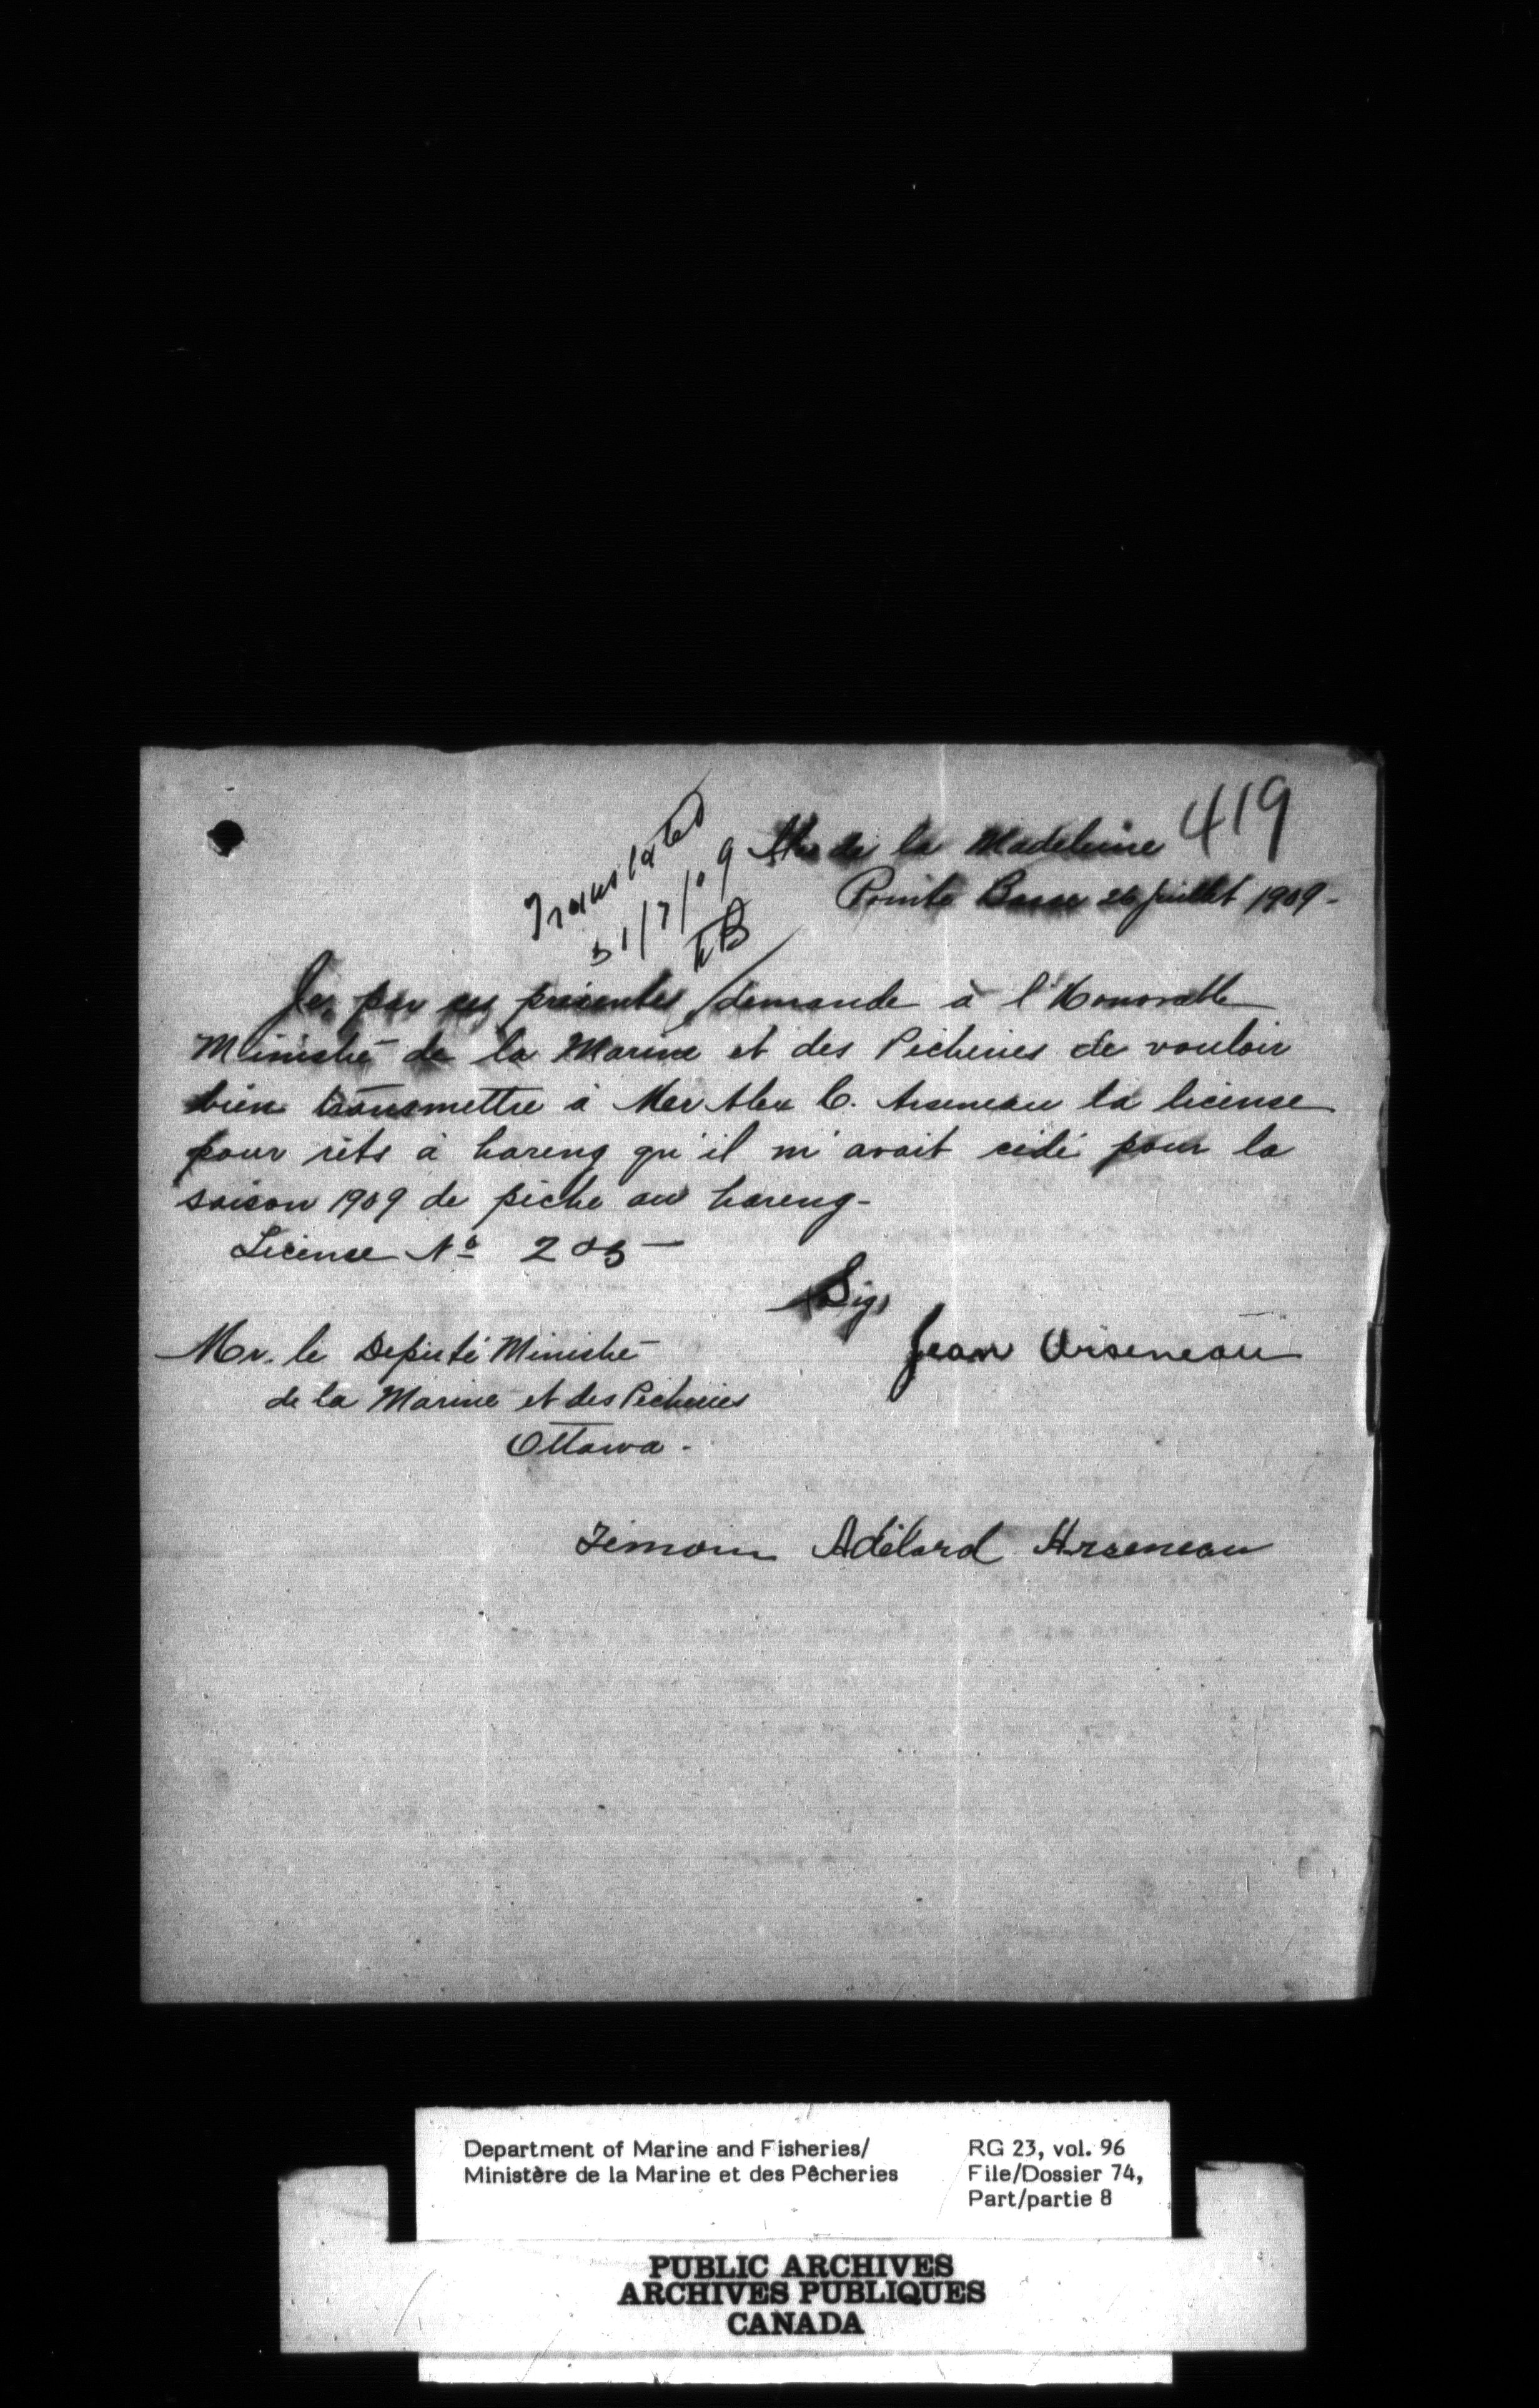 419
Translated
31/7/09
Iles de la Madeleine
Pointe Basse 26 Juillet 1909-
Je, par ces présentes, demande à l'Honorable
Ministre de la Marine et des Pecheries de vouloir
bien transmettre à Mer Alex C. Arseneau la license
pour rêts à hareng qu'il m'avait cédé pour la
saison 1909 de pêche au hareng-
License No 205-
Sig,
Jean Arseneau
Mr. le Deputé Ministre
de la Marine et des Pecheries
Ottawa -
Témoin Adélard Arseneau
Department of Marine and Fisheries/
Ministère de la Marine et des Pêcheries
RG 23, vol. 96
File/Dossier 74,
Part/partie 8
PUBLIC ARCHIVES
ARCHIVES PUBLIQUES
CANADA